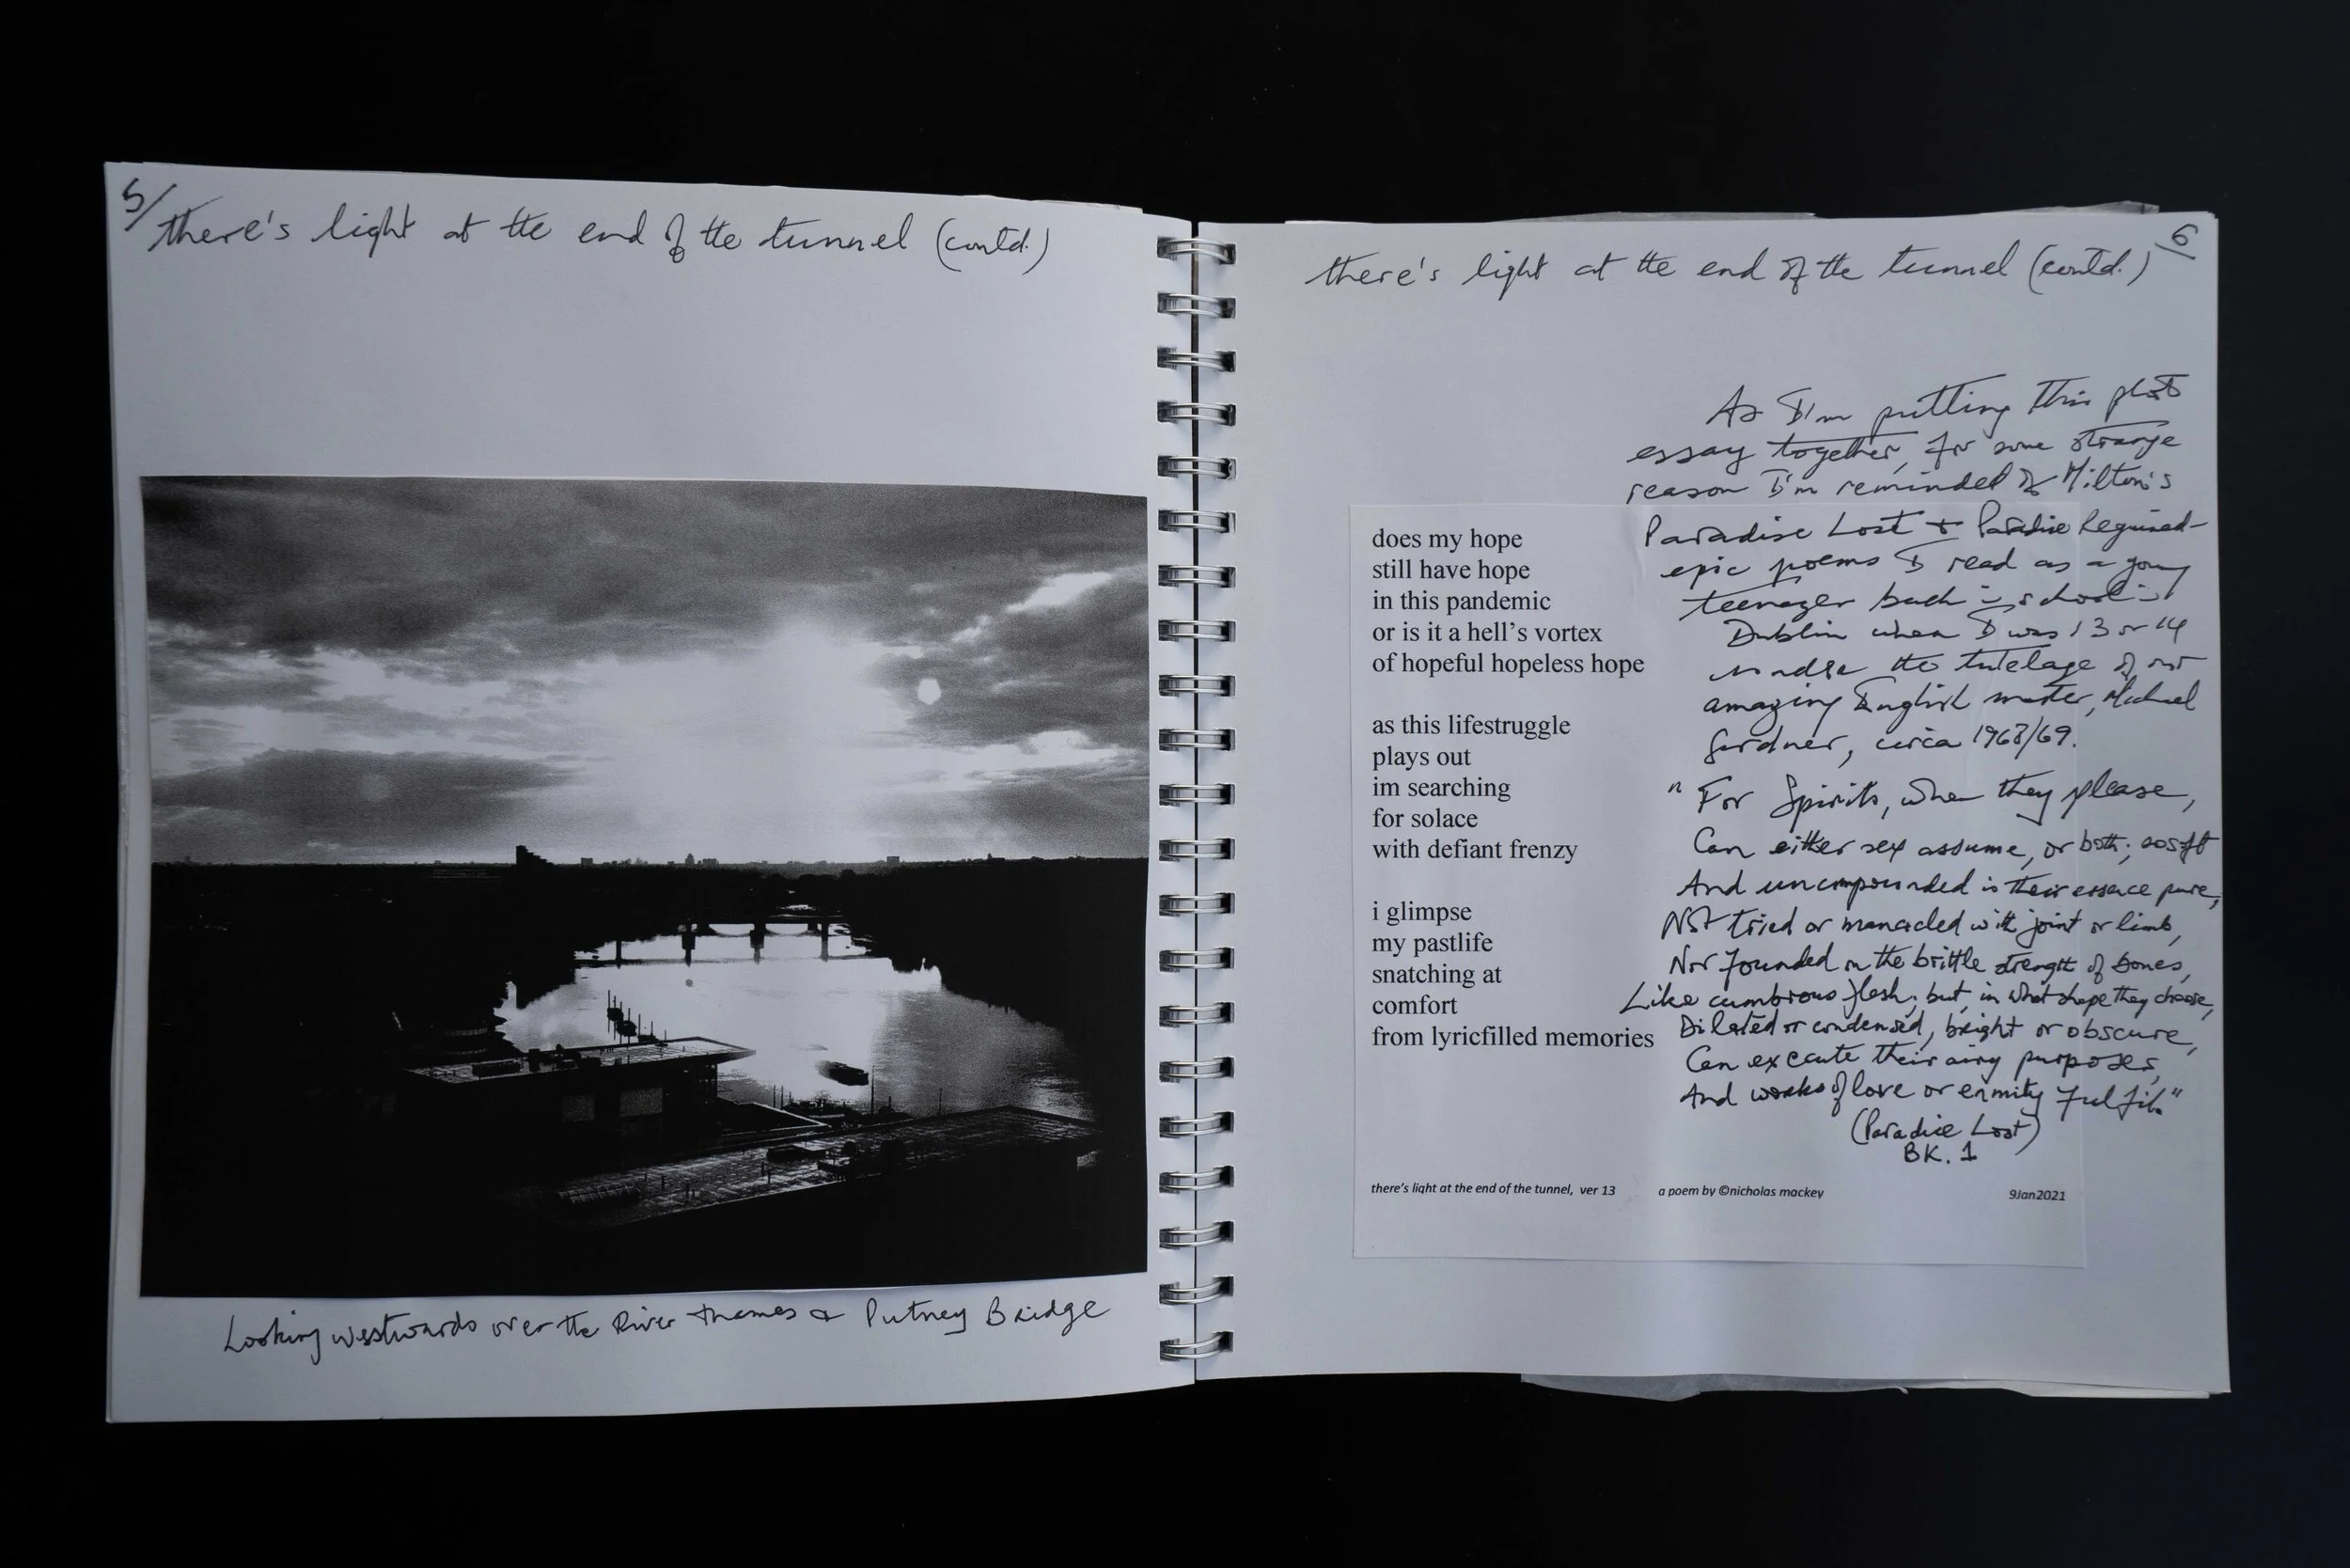 5/
there's light at the end of the tunnel (contd.)
Looking westwards over the River Thames & Putney Bridge
6/
there's light at the end of the tunnel (contd.)
As I'm putting this photo
essay together, for some strange
reason I'm reminded of Milton's
Paradise Lost + Paradise Regained -
epic poems I read as a young
teenager back in school in
Dublin when I was 13 or 14
under the tutelage of our
amazing English master, Michael
Gardner, circa 1968/69.
"For Spirits, when they please,
Can either sex assume, or both; so soft
And uncompounded is their essence pure,
Not tried or manacled with joint or limb,
Nor founded on the brittle strength of bones,
Like cumbrous flesh; but, in what shape they choose,
Dilated or condensed, bright or obscure,
Can execute their airy purposes,
And works of love or enmity fulfil."
(Paradise Lost)
BK. 1
does my hope
still have hope
in this pandemic
or is it a hell's vortex
of hopeful hopeless hope
as this lifestruggle
plays out
im searching
for solace
with defiant frenzy
i glimpse
my pastlife
snatching at
comfort
from lyricfilled memories
there's light at the end of the tunnel, ver 13 a poem by ©nicholas mackey 9Jan2021